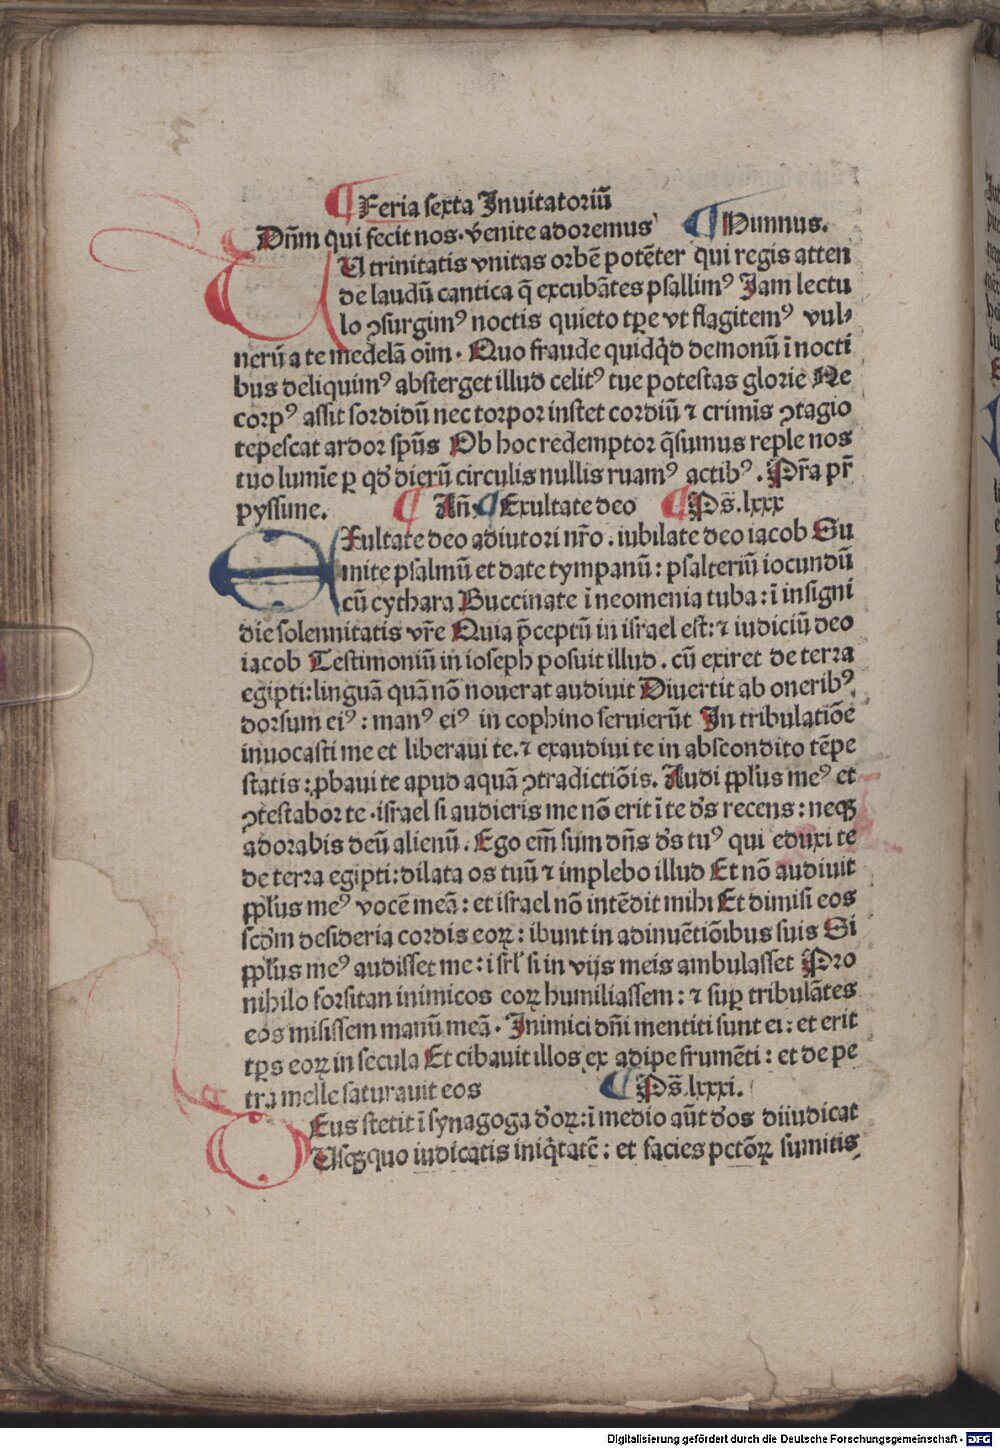 ¶ Feria sexta Inuitatoriū
Dn̄m qui fecit nos. venite adoremus ¶ Ymnus.
TU trinitatis vnitas orbē potēter qui regis atten
de laudū cantica q̄ excubātes psallimꝰ Jam lectu
lo ꝯsurgimꝰ noctis quieto tp̄e vt flagitemꝰ vul⸗
nerū a te medelā oīm. Quo fraude quidq̇d demonū ī nocti
bus deliquimꝰ absterget illud celitꝰ tue potestas glorie Ne
corpꝰ assit sordidū nec torpor instet cordiū ⁊ crimīs ꝯtagio
tepescat ardor spūs Ob hoc redemptor q̄sumus reple nos
tuo lumīe ꝑ qd̄ dierū circulis nullis ruamꝰ actibꝰ. Pr̄a pr̄
pyssime. ¶ An̄. ¶ Exultate deo ¶ Ps̄. lxxx
EXultate deo adiutori nr̄o. iubilate deo iacob Su
mite psalmū et date tympanū: psalteriū iocundū
cū cythara Buccinate ī neomenia tuba: ī insigni
die solennitatis vr̄e Quia p̄ceptū in israel est: ⁊ iudiciū deo
iacob Testimoniū in ioseph posuit illud. cū exiret de terra
egipti: linguā quā nō nouerat audiuit Diuertit ab oneribꝰ
dorsum eiꝰ: manꝰ eiꝰ in cophino seruierūt In tribulatiōe
inuocasti me et liberaui te. ⁊ exaudiui te in abscondito tēpe
statis: ꝓbaui te apud aquā ꝯtradictiōis. Audi pp̄lus meꝰ et
ꝯtestabor te. israel si audieris me nō erit ī te ds̄ recens: neqꝫ
adorabis deū alienū. Ego em̄ sum dn̄s ds̄ tuꝰ qui eduxi te
de terra egipti: dilata os tuū ⁊ implebo illud Et nō audiuit
pp̄lus meꝰ vocē meā: et israel nō intēdit mihi Et dimisi eos
scd̄m desideria cordis eoꝝ: ibunt in adinuētiōibus suis Si
pp̄lus meꝰ audisset me: isrl̄ si in vijs meis ambulasset Pro
nihilo forsitan inimicos eoꝝ humiliassem: ⁊ suꝑ tribulātes
eos misissem manū meā. Inimici dn̄i mentiti sunt ei: et erit
tp̄s eoꝝ in secula Et cibauit illos ex adipe frumēti: et de pe
tra melle saturauit eos ¶ Ps̄. lxxxi.
DEus stetit ī synagoga deoꝝ: ī medio aūt deos diiudicat
Usqꝫquo iudicatis iniq̇tatē: et facies pctōꝝ sumitis
Digitalisierung gefördert durch die Deutsche Forschungsgemeinschaft - DFG